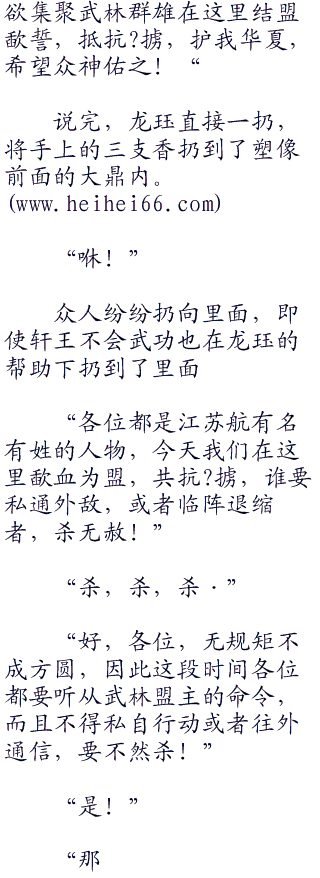 欲集聚武林群雄在这里结盟
歃誓，抵抗?掳，护我华夏，
希望众神佑之！“
说完，龙珏直接一扔，
将手上的三支香扔到了塑像
前面的大鼎内。
(www.heihei66.com)
“咻！”
众人纷纷扔向里面，即
使轩王不会武功也在龙珏的
帮助下扔到了里面
“各位都是江苏航有名
有姓的人物，今天我们在这
里歃血为盟，共抗?掳，谁要
私通外敌，或者临阵退缩
者，杀无赦！”
“杀，杀，杀·”
“好，各位，无规矩不
成方圆，因此这段时间各位
都要听从武林盟主的命令，
而且不得私自行动或者往外
通信，要不然杀！”
“是！”
“那